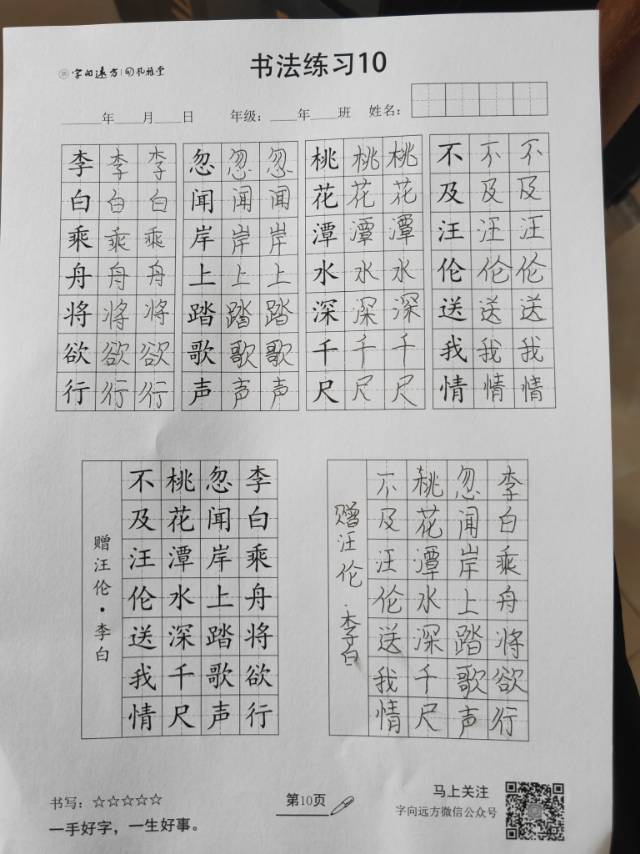 字向远方
书法练习10
____年____月____日 年级：____年____班 姓名：
李李李 忽忽忽 桃桃桃 不不不
白白白 闻闻闻 花花花 及及及
乘乘乘 岸岸岸 潭潭潭 汪汪汪
舟舟舟 上上上 水水水 伦伦伦
将将将 踏踏踏 深深深 送送送
欲欲欲 歌歌歌 千千千 我我我
行行行 声声声 尺尺尺 情情情
赠汪伦·李白
李白乘舟将欲行
忽闻岸上踏歌声
桃花潭水深千尺
不及汪伦送我情
赠汪伦·李白
李白乘舟将欲行
忽闻岸上踏歌声
桃花潭水深千尺
不及汪伦送我情
书写：☆☆☆☆☆
一手好字，一生好事。
第10页
马上关注
字向远方微信公众号